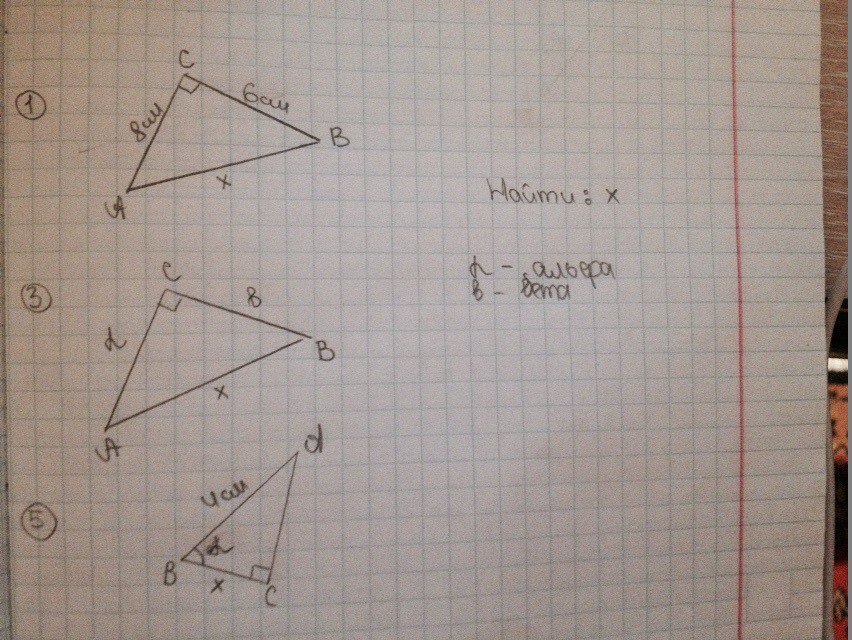 1
C
8см
6см
B
x
A
Найти: x
α - альфа
β - бета
3
C
α
β
B
x
A
5
d
4см
α
B
x
C